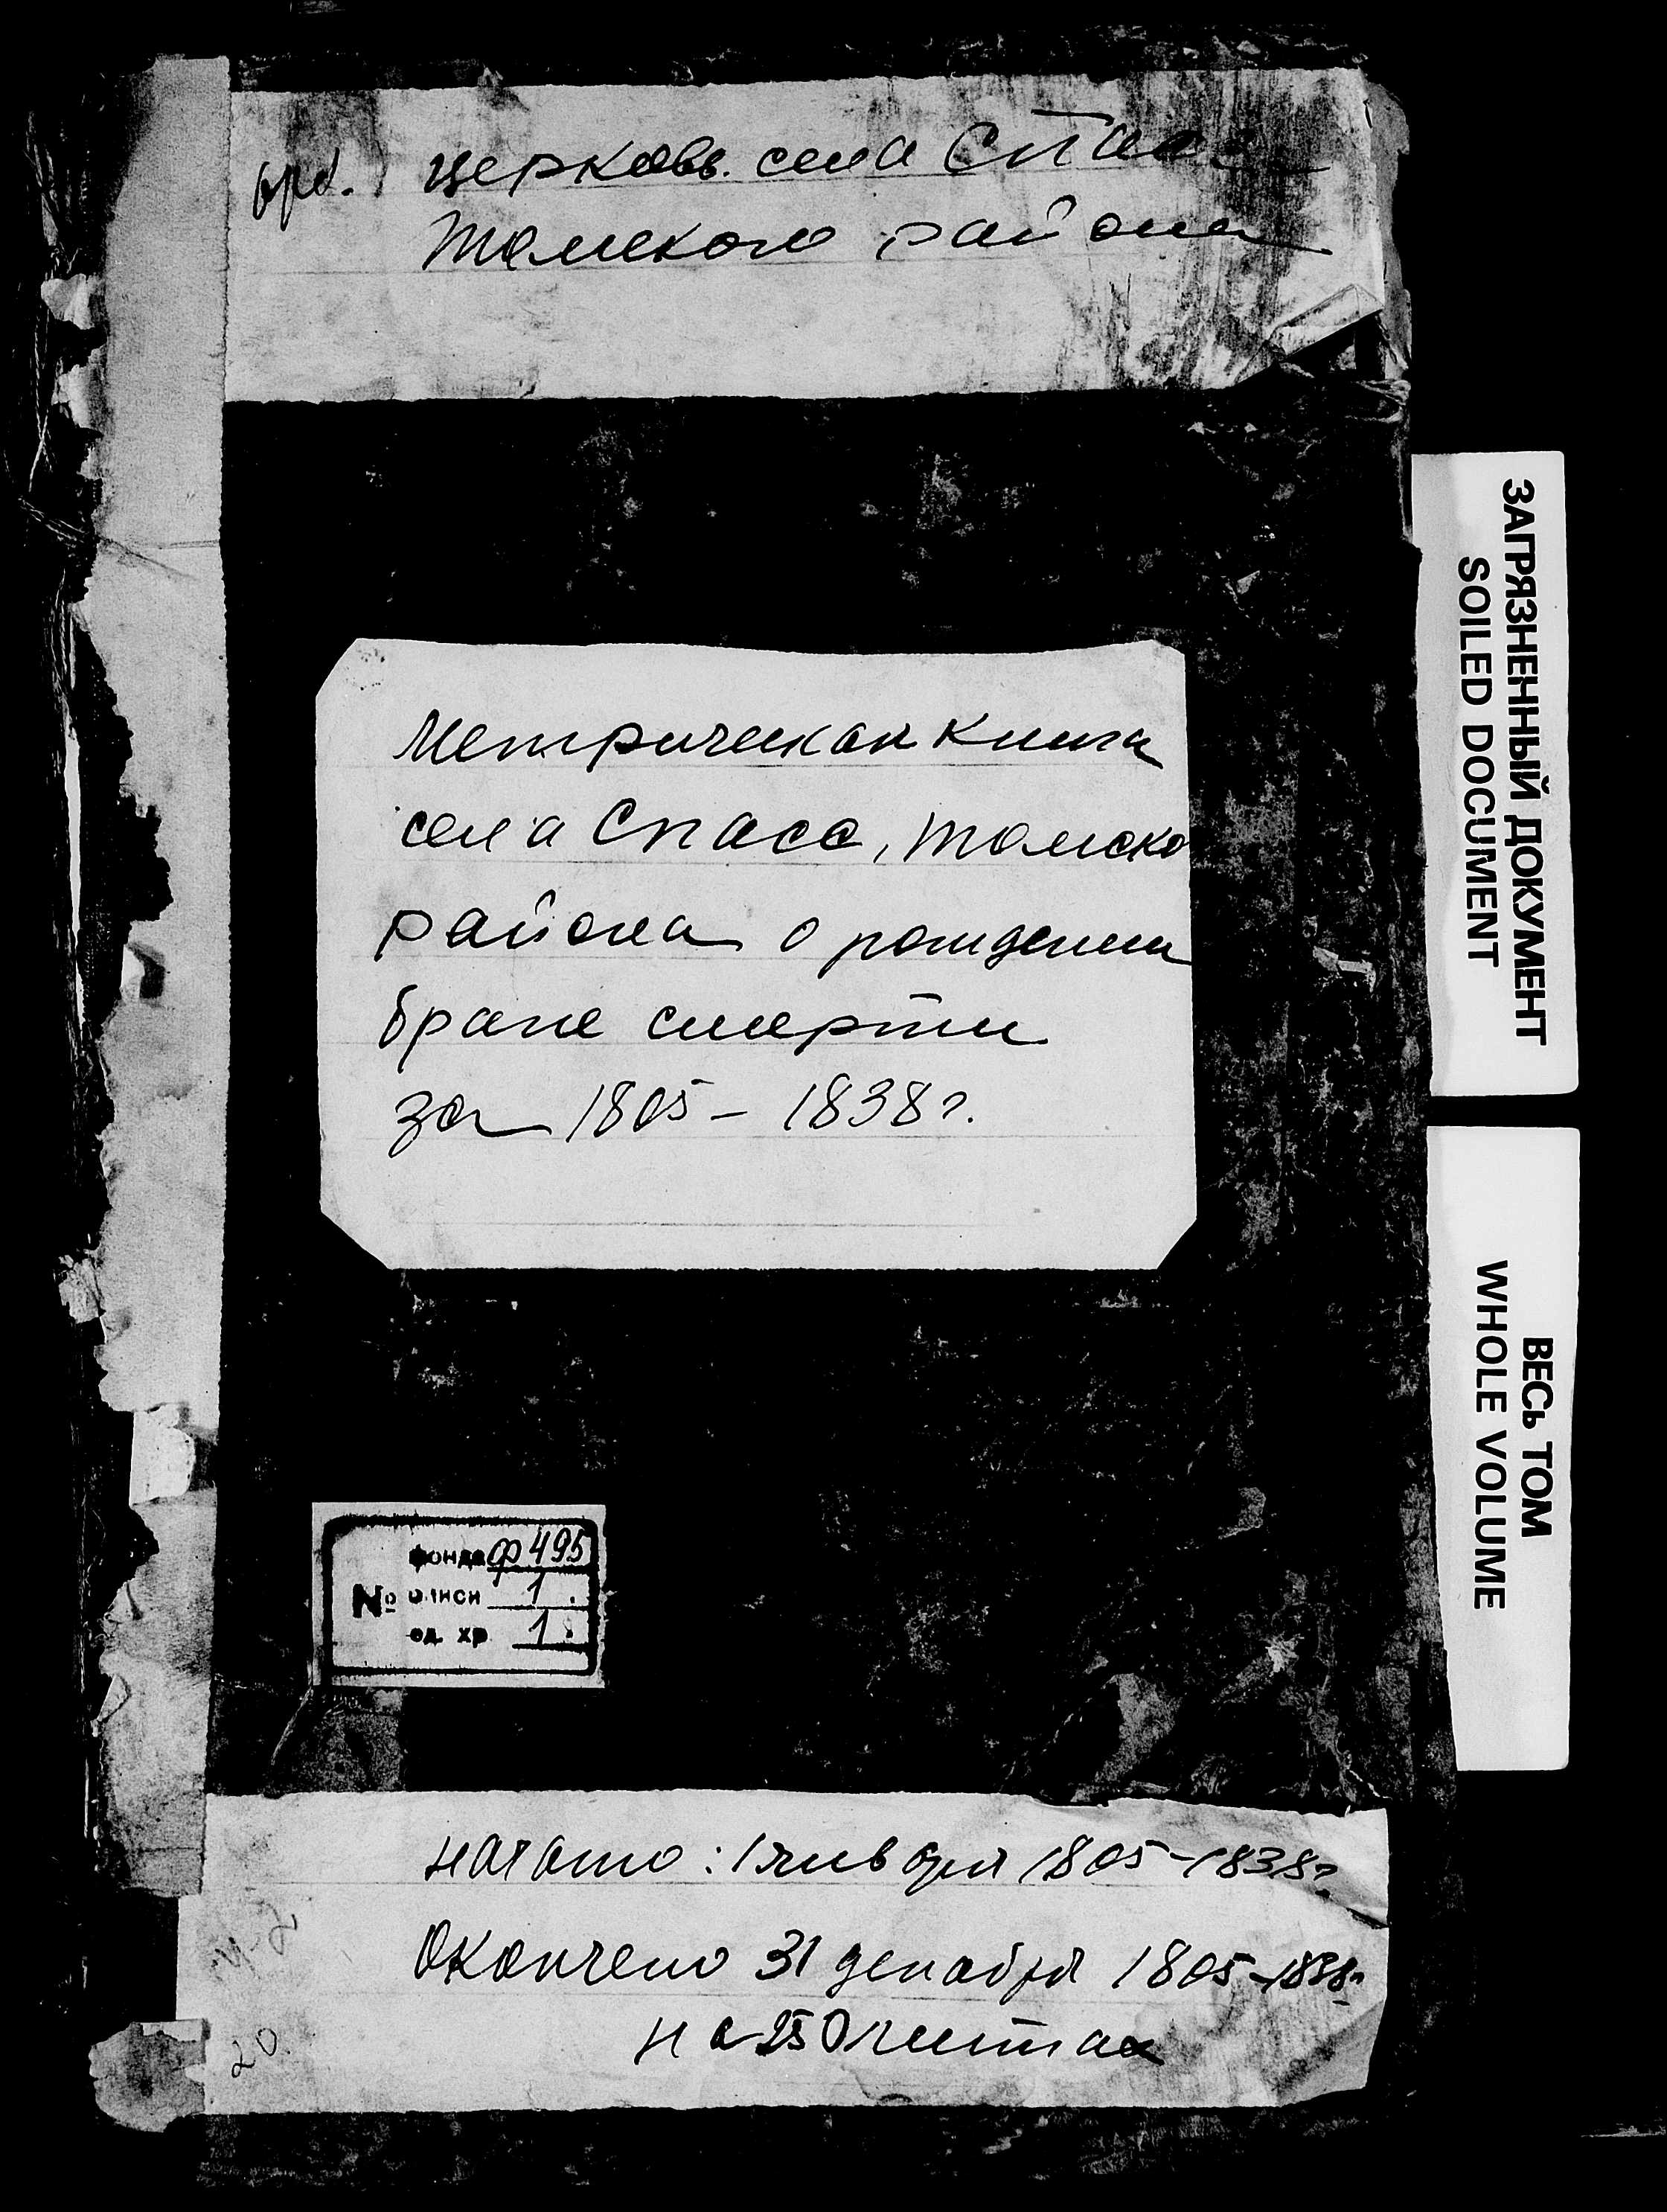 церковь села Спасс
Томского района
Метрическая книга
села Спасс, Томско
района о рождении
браке смерти
за 1805 - 1838 г.
фонда ф 495
№ описи 1
ед. хр. 1
начато: 1 января 1805-1838 г.
Окончено 31 декабря 1805-1838 г.
на 250 листах
20.
ЗАГРЯЗНЕННЫЙ ДОКУМЕНТ
SOILED DOCUMENT
ВЕСЬ ТОМ
WHOLE VOLUME